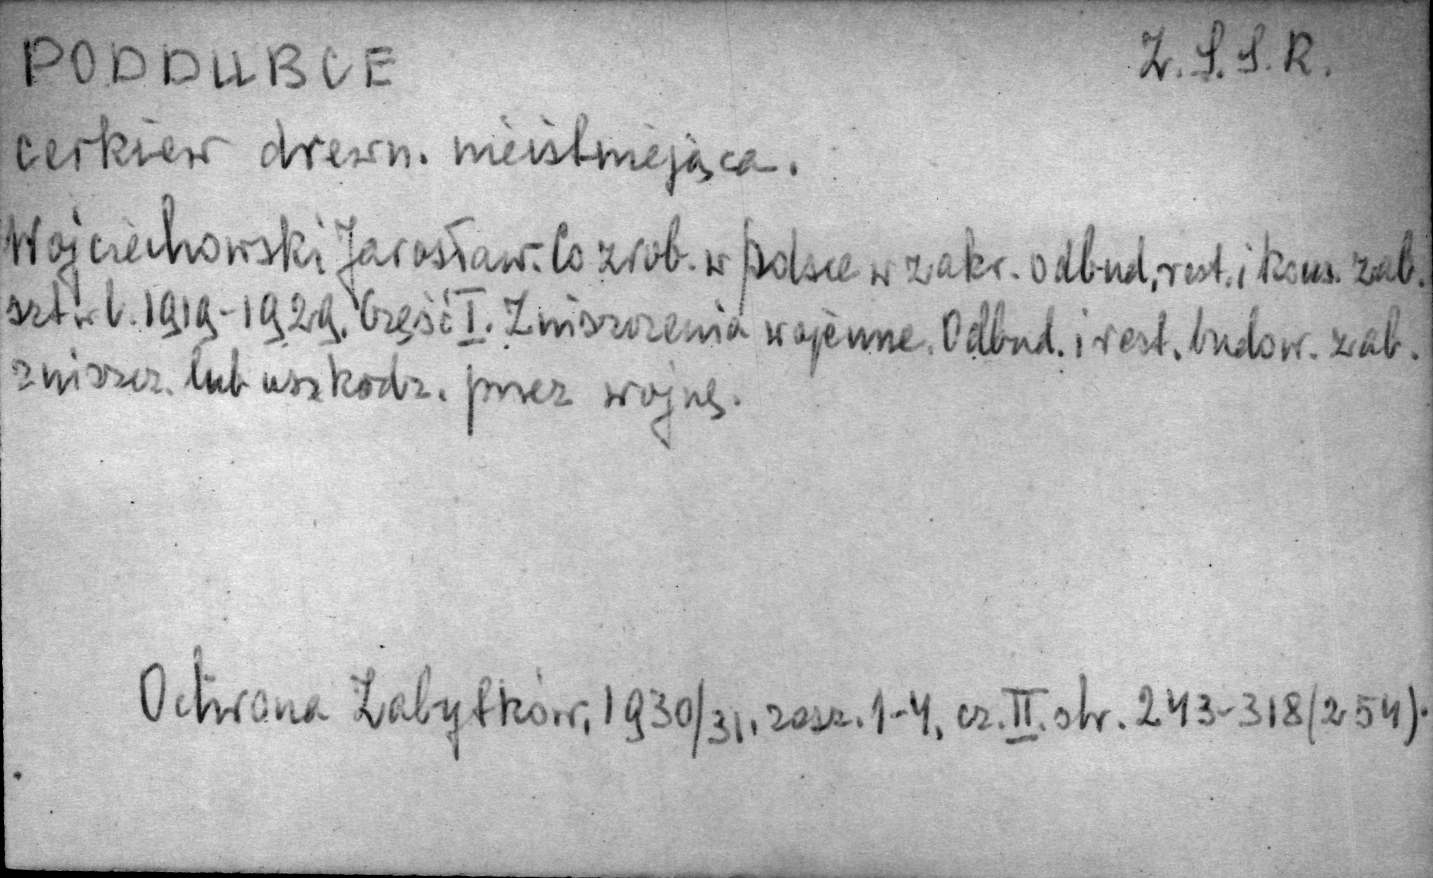 PODDUBCE Z.S.S.R.
cerkiew drewn. nieistniejąca.
Wojciechowski Jarosław. Co zrob. w Polsce w zakr. odbud., rest. i kons. zab.
szt. w l. 1919-1929. Część I. Zniszczenia wojenne. Odbud. i rest. budow. zab.
zniszcz. lub uszkodz. przez wojnę.
Ochrona Zabytków, 1930/31, zesz. 1-4, cz. II. str. 243-318 (254).